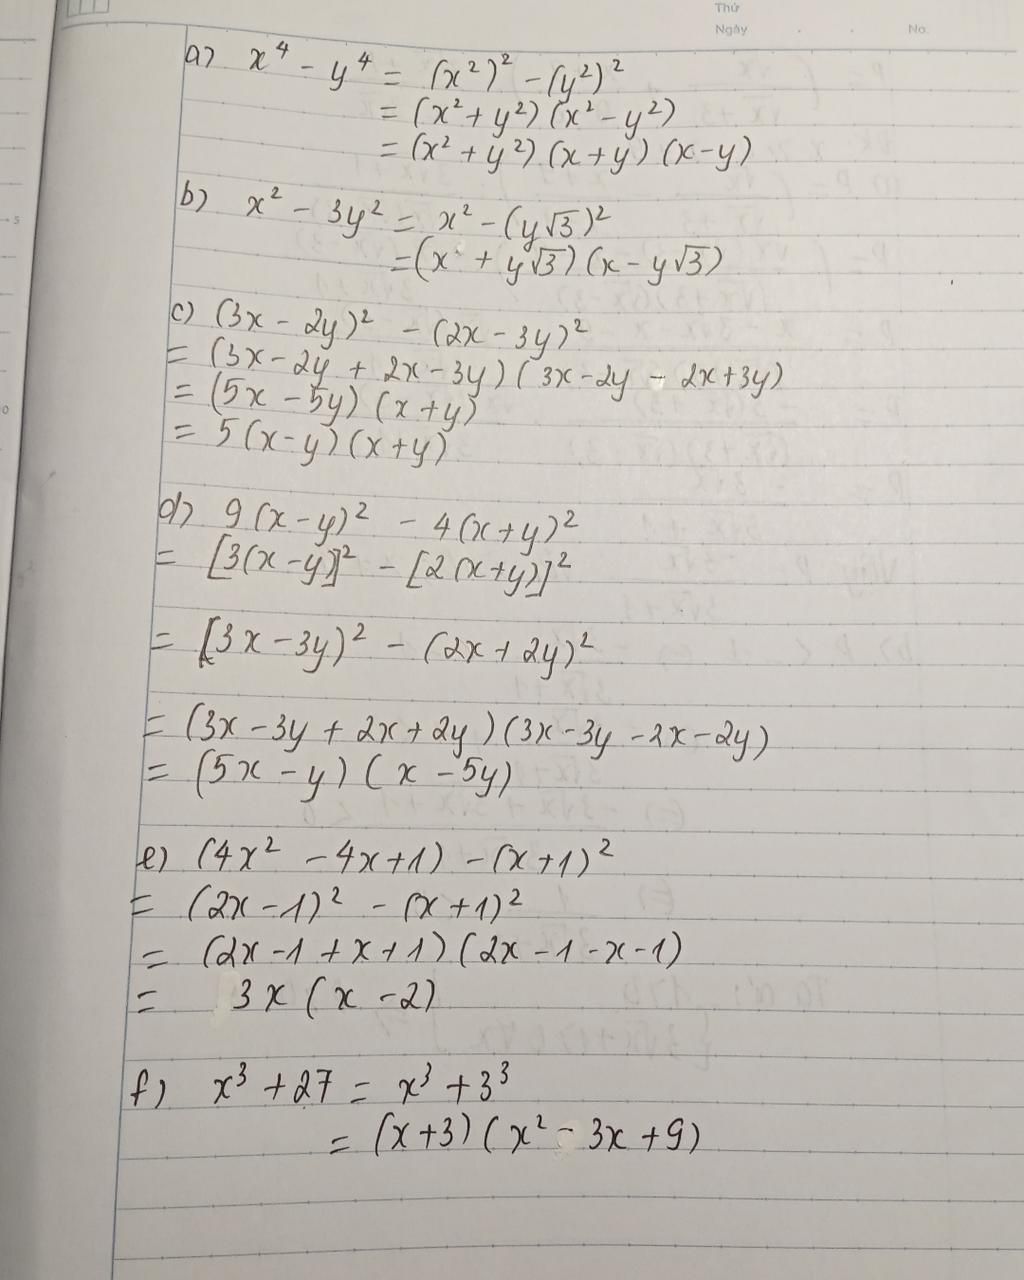 Thứ
Ngày
No.
a) x⁴ - y⁴ = (x²)² - (y²)²
= (x² + y²) (x² - y²)
= (x² + y²) (x + y) (x - y)
b) x² - 3y² = x² - (y√3)²
= (x + y√3) (x - y√3)
c) (3x - 2y)² - (2x - 3y)²
= (3x - 2y + 2x - 3y) (3x - 2y - 2x + 3y)
= (5x - 5y) (x + y)
= 5(x - y) (x + y)
d) 9(x - y)² - 4(x + y)²
= [3(x - y)]² - [2(x + y)]²
= (3x - 3y)² - (2x + 2y)²
= (3x - 3y + 2x + 2y) (3x - 3y - 2x - 2y)
= (5x - y) (x - 5y)
e) (4x² - 4x + 1) - (x + 1)²
= (2x - 1)² - (x + 1)²
= (2x - 1 + x + 1) (2x - 1 - x - 1)
= 3x (x - 2)
f) x³ + 27 = x³ + 3³
= (x + 3) (x² - 3x + 9)